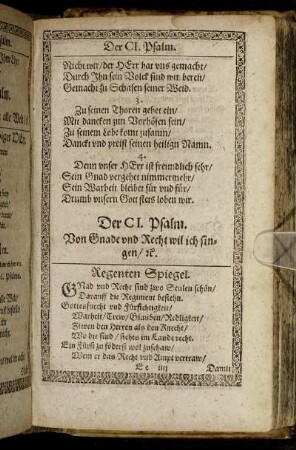 Der CI. Psalm.
Nicht wir/ der HErr hat vns gemacht/
Durch Ihn sein Volck sind wir bereit/
Gemacht zu Schafen seiner Weid.
3.
Zu seinen Thoren gehet ein/
Mit dancken zum Vorhöfen sein/
Zu seinem Lobe komt zusamn/
Danckt vnd preist seinen heilign Namn.
4.
Denn vnser HErr ist freundlich sehr/
Sein Gnad vergehet nimmermehr/
Sein Warheit bleibet für vnd für/
Drumb vnsern Gott stets loben wir.
Der CI. Psalm.
Von Gnade vnd Recht wil ich sin-
gen/ ꝛc.
Regenten Spiegel.
GNad vnd Recht sind zwo Seulen schön/
Darauff die Regiment bestehn.
Gottesfurcht vnd Fürsichtigkeit/
Warheit/ Trew/ Glauben/ Redligkeit/
Zieren den Herren als den Knecht/
Wo die sind/ stehts im Lande recht.
Ein Fürst zu föderst wol zuschaw/
Wem er das Recht vnd Ampt vertraw/
Ee iiij
Damit